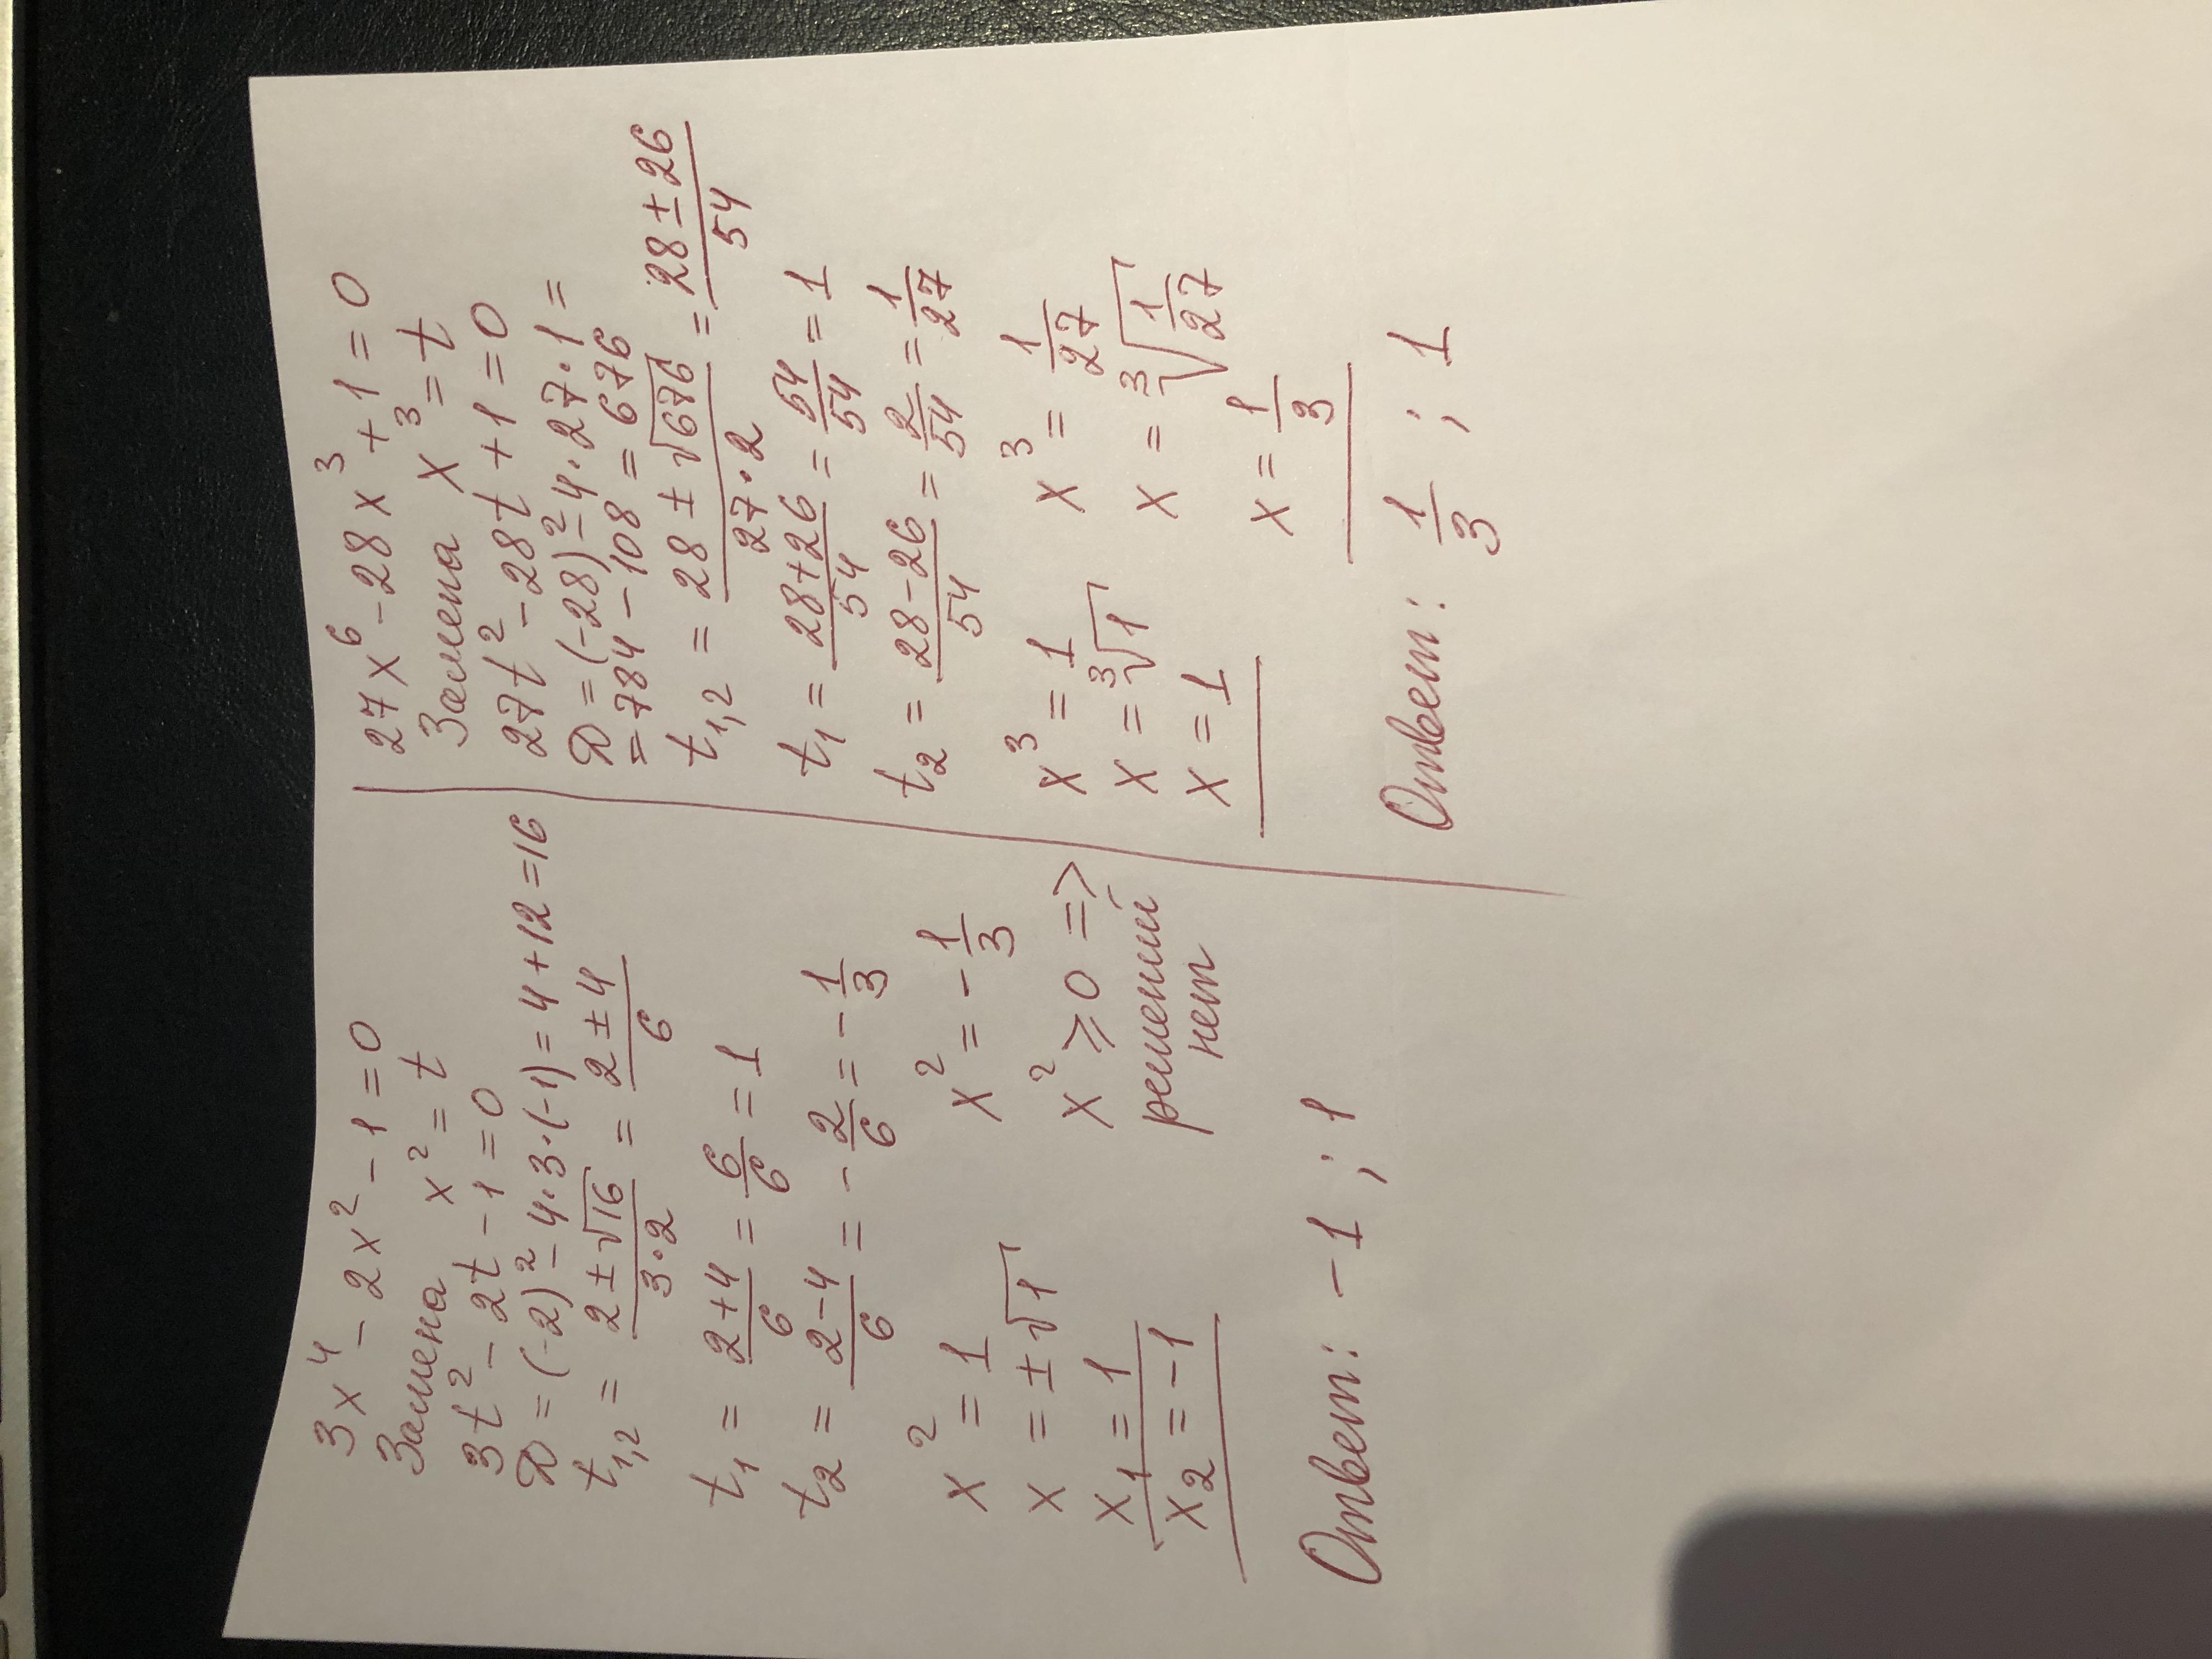 3x⁴ - 2x² - 1 = 0
Замена x² = t
3t² - 2t - 1 = 0
D = (-2)² - 4·3·(-1) = 4 + 12 = 16
t₁,₂ = (2 ± √16)/(3·2) = (2 ± 4)/6
t₁ = (2+4)/6 = 6/6 = 1
t₂ = (2-4)/6 = -2/6 = -1/3
x² = 1 x² = -1/3
x = ±√1 x² ⩾ 0 =>
x₁ = 1 решений
x₂ = -1 нет
Ответ: -1 ; 1
27x⁶ - 28x³ + 1 = 0
Замена x³ = t
27t² - 28t + 1 = 0
D = (-28)² - 4·27·1 =
= 784 - 108 = 676
t₁,₂ = (28 ± √676)/(27·2) = (28 ± 26)/54
t₁ = (28+26)/54 = 54/54 = 1
t₂ = (28-26)/54 = 2/54 = 1/27
x³ = 1 x³ = 1/27
x = ³√1 x = ³√(1/27)
x = 1 x = 1/3
Ответ: 1/3 ; 1